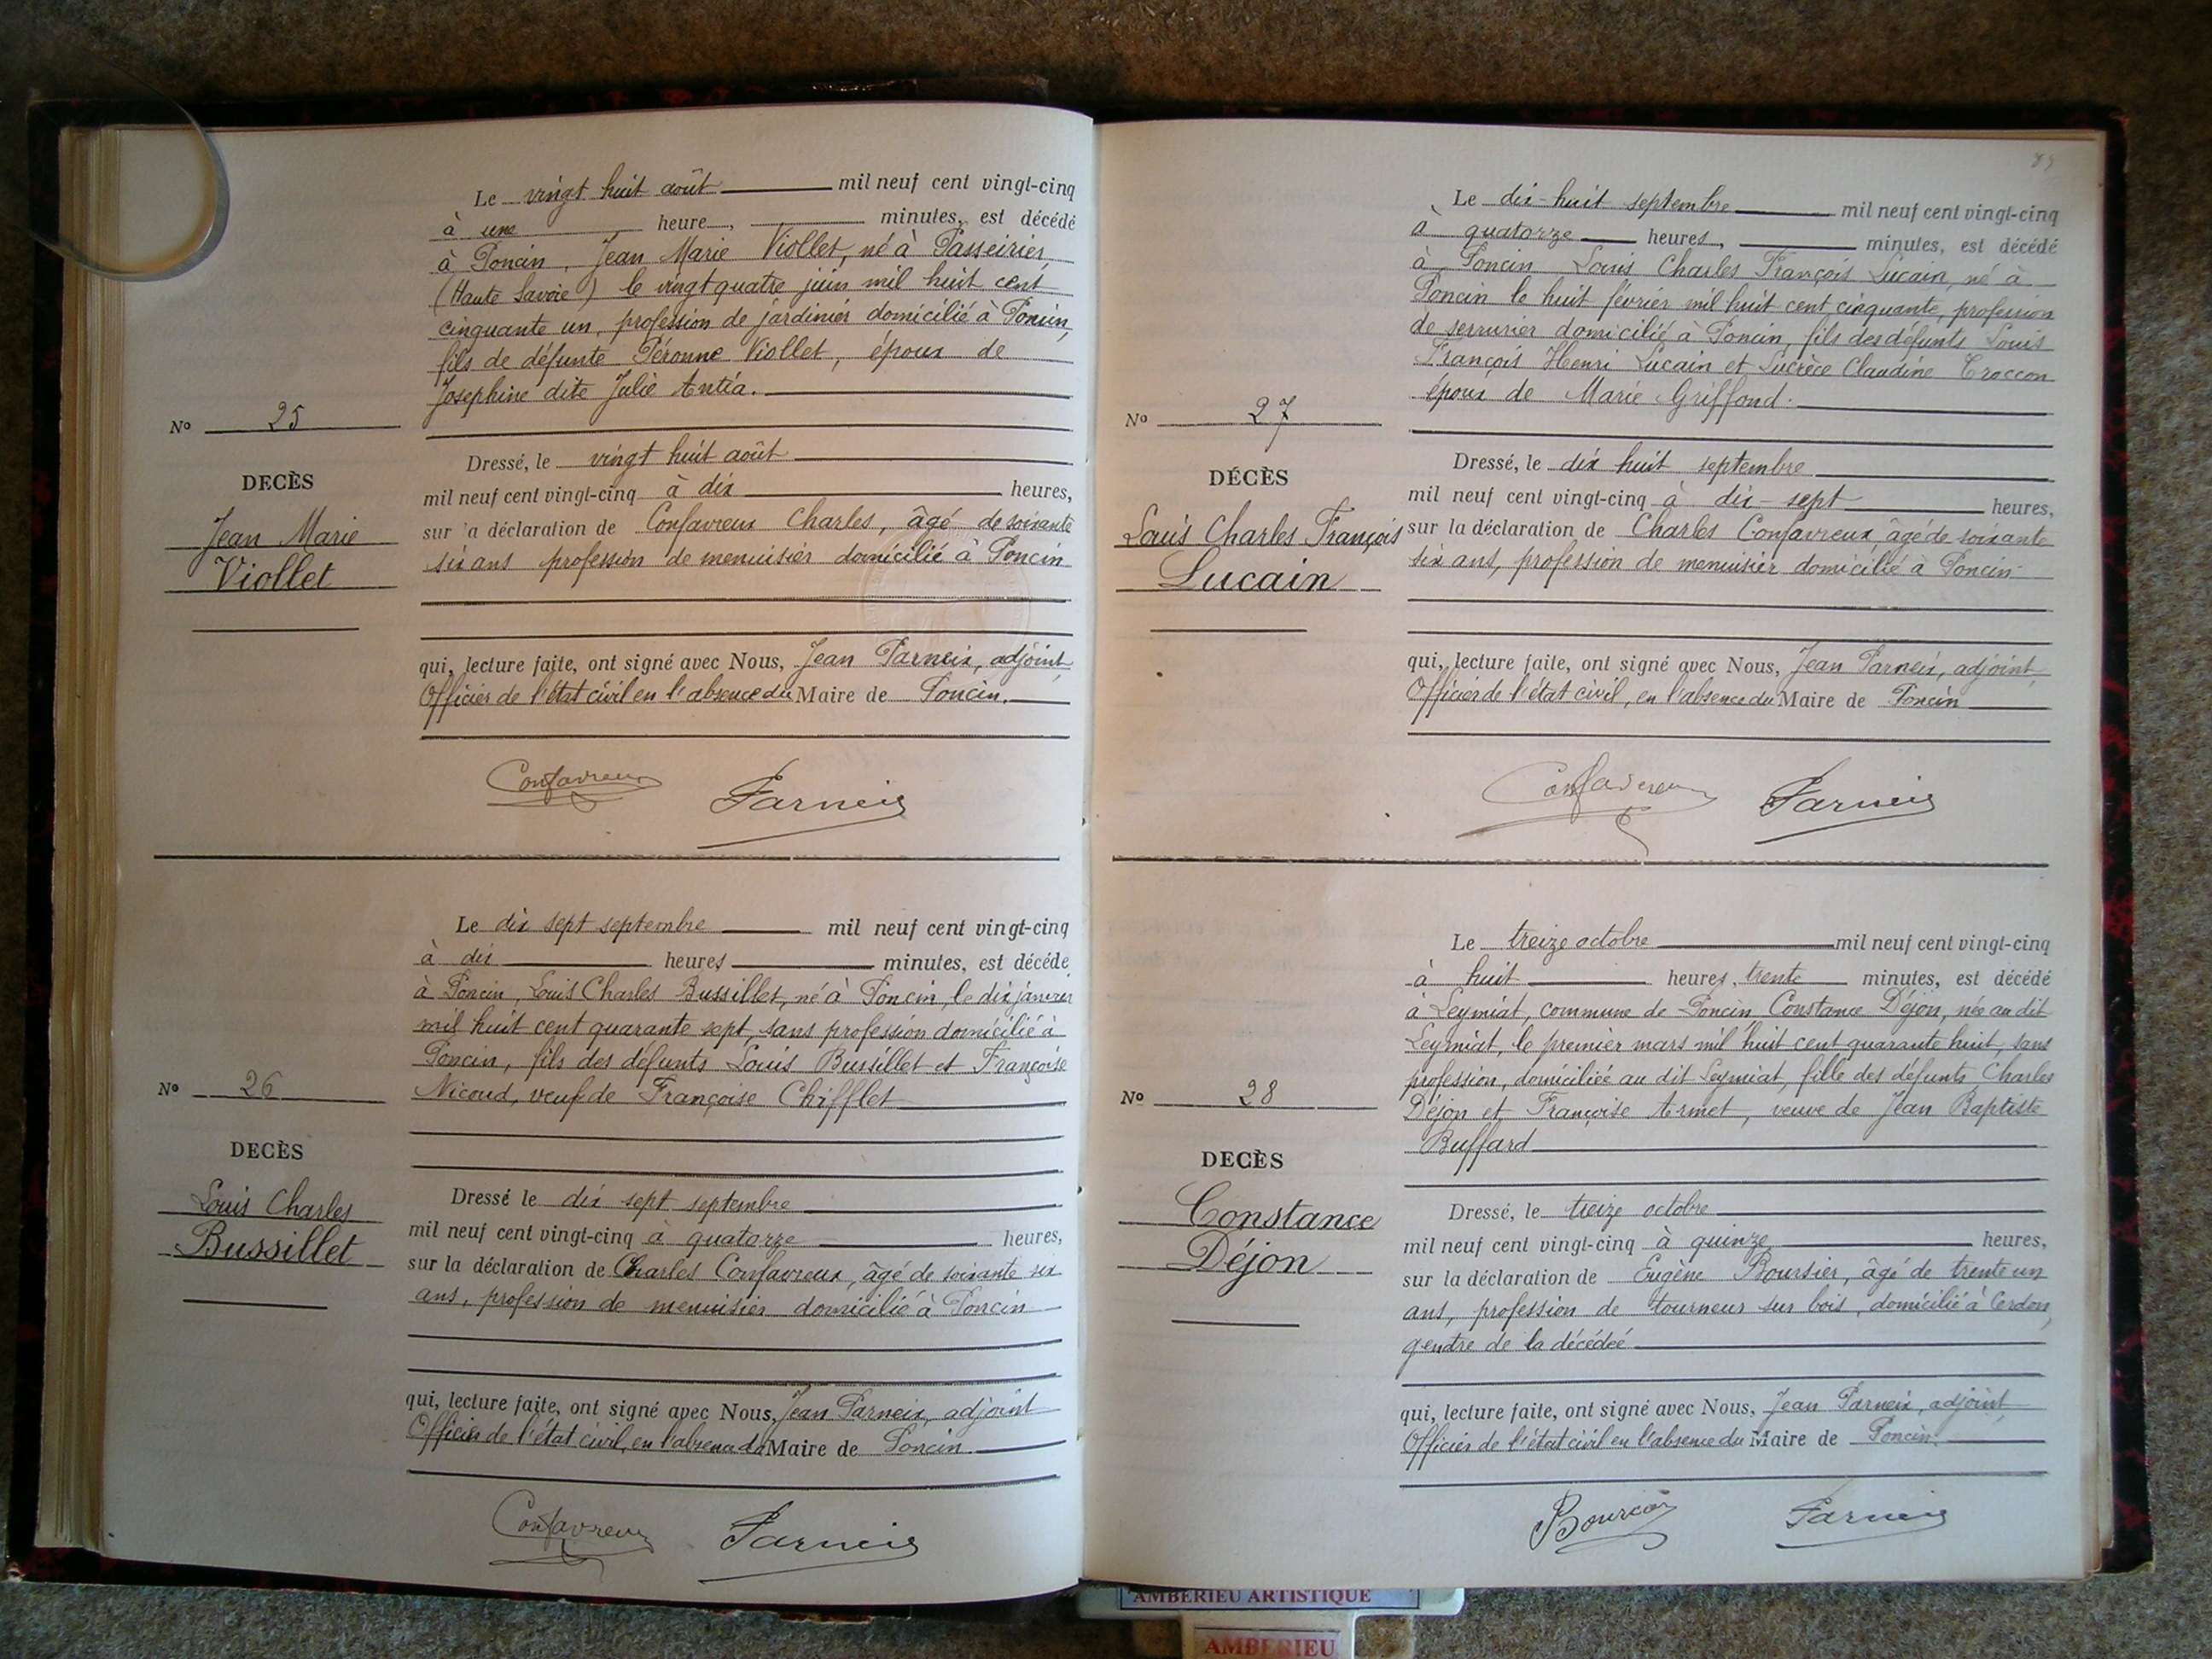 Le vingt huit août mil neuf cent vingt-cinq
à une heure, minutes, est décédé
à Poncin, Jean Marie Viollet, né à Passeirier,
(Haute Savoie) le vingt quatre juin mil huit cent
cinquante un, profession de jardinier domicilié à Poncin,
fils de défunte Péronne Viollet, époux de
Josephine dite Julie Antia.
No 25
DECÈS
Jean Marie
Viollet
Dressé, le vingt huit août
mil neuf cent vingt-cinq à dix heures,
sur la déclaration de Confavreux Charles, âgé de soixante
six ans profession de menuisier domicilié à Poncin
qui, lecture faite, ont signé avec Nous, Jean Parneix, adjoint,
Officier de l'état civil en l'absence du Maire de Poncin.
Confavreux Parneix
Le dix sept septembre mil neuf cent vingt-cinq
à dix heures minutes, est décédé
à Poncin, Louis Charles Bussillet, né à Poncin, le dix janvier
mil huit cent quarante sept, sans profession domicilié à
Poncin, fils des défunts Louis Bussillet et Françoise
Nicoud, veuf de Françoise Chifflet
No 26
DECÈS
Louis Charles
Bussillet
Dressé le dix sept septembre
mil neuf cent vingt-cinq à quatorze heures,
sur la déclaration de Charles Confavreux, âgé de soixante six
ans, profession de menuisier domicilié à Poncin
qui, lecture faite, ont signé avec Nous, Jean Parneix, adjoint
Officier de l'état civil, en l'absence du Maire de Poncin.
Confavreux Parneix
Le dix-huit septembre mil neuf cent vingt-cinq
à quatorze heures, minutes, est décédé
à Poncin Louis Charles François Lucain, né à
Poncin le huit février mil huit cent cinquante, profession
de serrurier domicilié à Poncin, fils des défunts Louis
François Henri Lucain et Lucrèce Claudine Croccon
époux de Marie Griffond.
No 27
DÉCÈS
Louis Charles François
Lucain
Dressé, le dix huit septembre
mil neuf cent vingt-cinq à dix-sept heures,
sur la déclaration de Charles Confavreux âgé de soixante
six ans, profession de menuisier domicilié à Poncin
qui, lecture faite, ont signé avec Nous, Jean Parneix, adjoint,
Officier de l'état civil, en l'absence du Maire de Poncin
Confavreux Parneix
Le treize octobre mil neuf cent vingt-cinq
à huit heures, trente minutes, est décédé
à Leymiat, commune de Poncin, Constance Déjon, née au dit
Leymiat, le premier mars mil huit cent quarante huit, sans
profession, domiciliée au dit Leymiat, fille des défunts Charles
Déjon et Françoise Armet, veuve de Jean Baptiste
Buffard
No 28
DECÈS
Constance
Déjon
Dressé, le treize octobre
mil neuf cent vingt-cinq à quinze heures,
sur la déclaration de Eugène Boursier, âgé de trente un
ans, profession de tourneur sur bois, domicilié à Cerdon,
gendre de la décédée
qui, lecture faite, ont signé avec Nous, Jean Parneix, adjoint,
Officier de l'état civil en l'absence du Maire de Poncin.
Parneix
AMBERIEU ARTISTIQUE
AMBERIEU